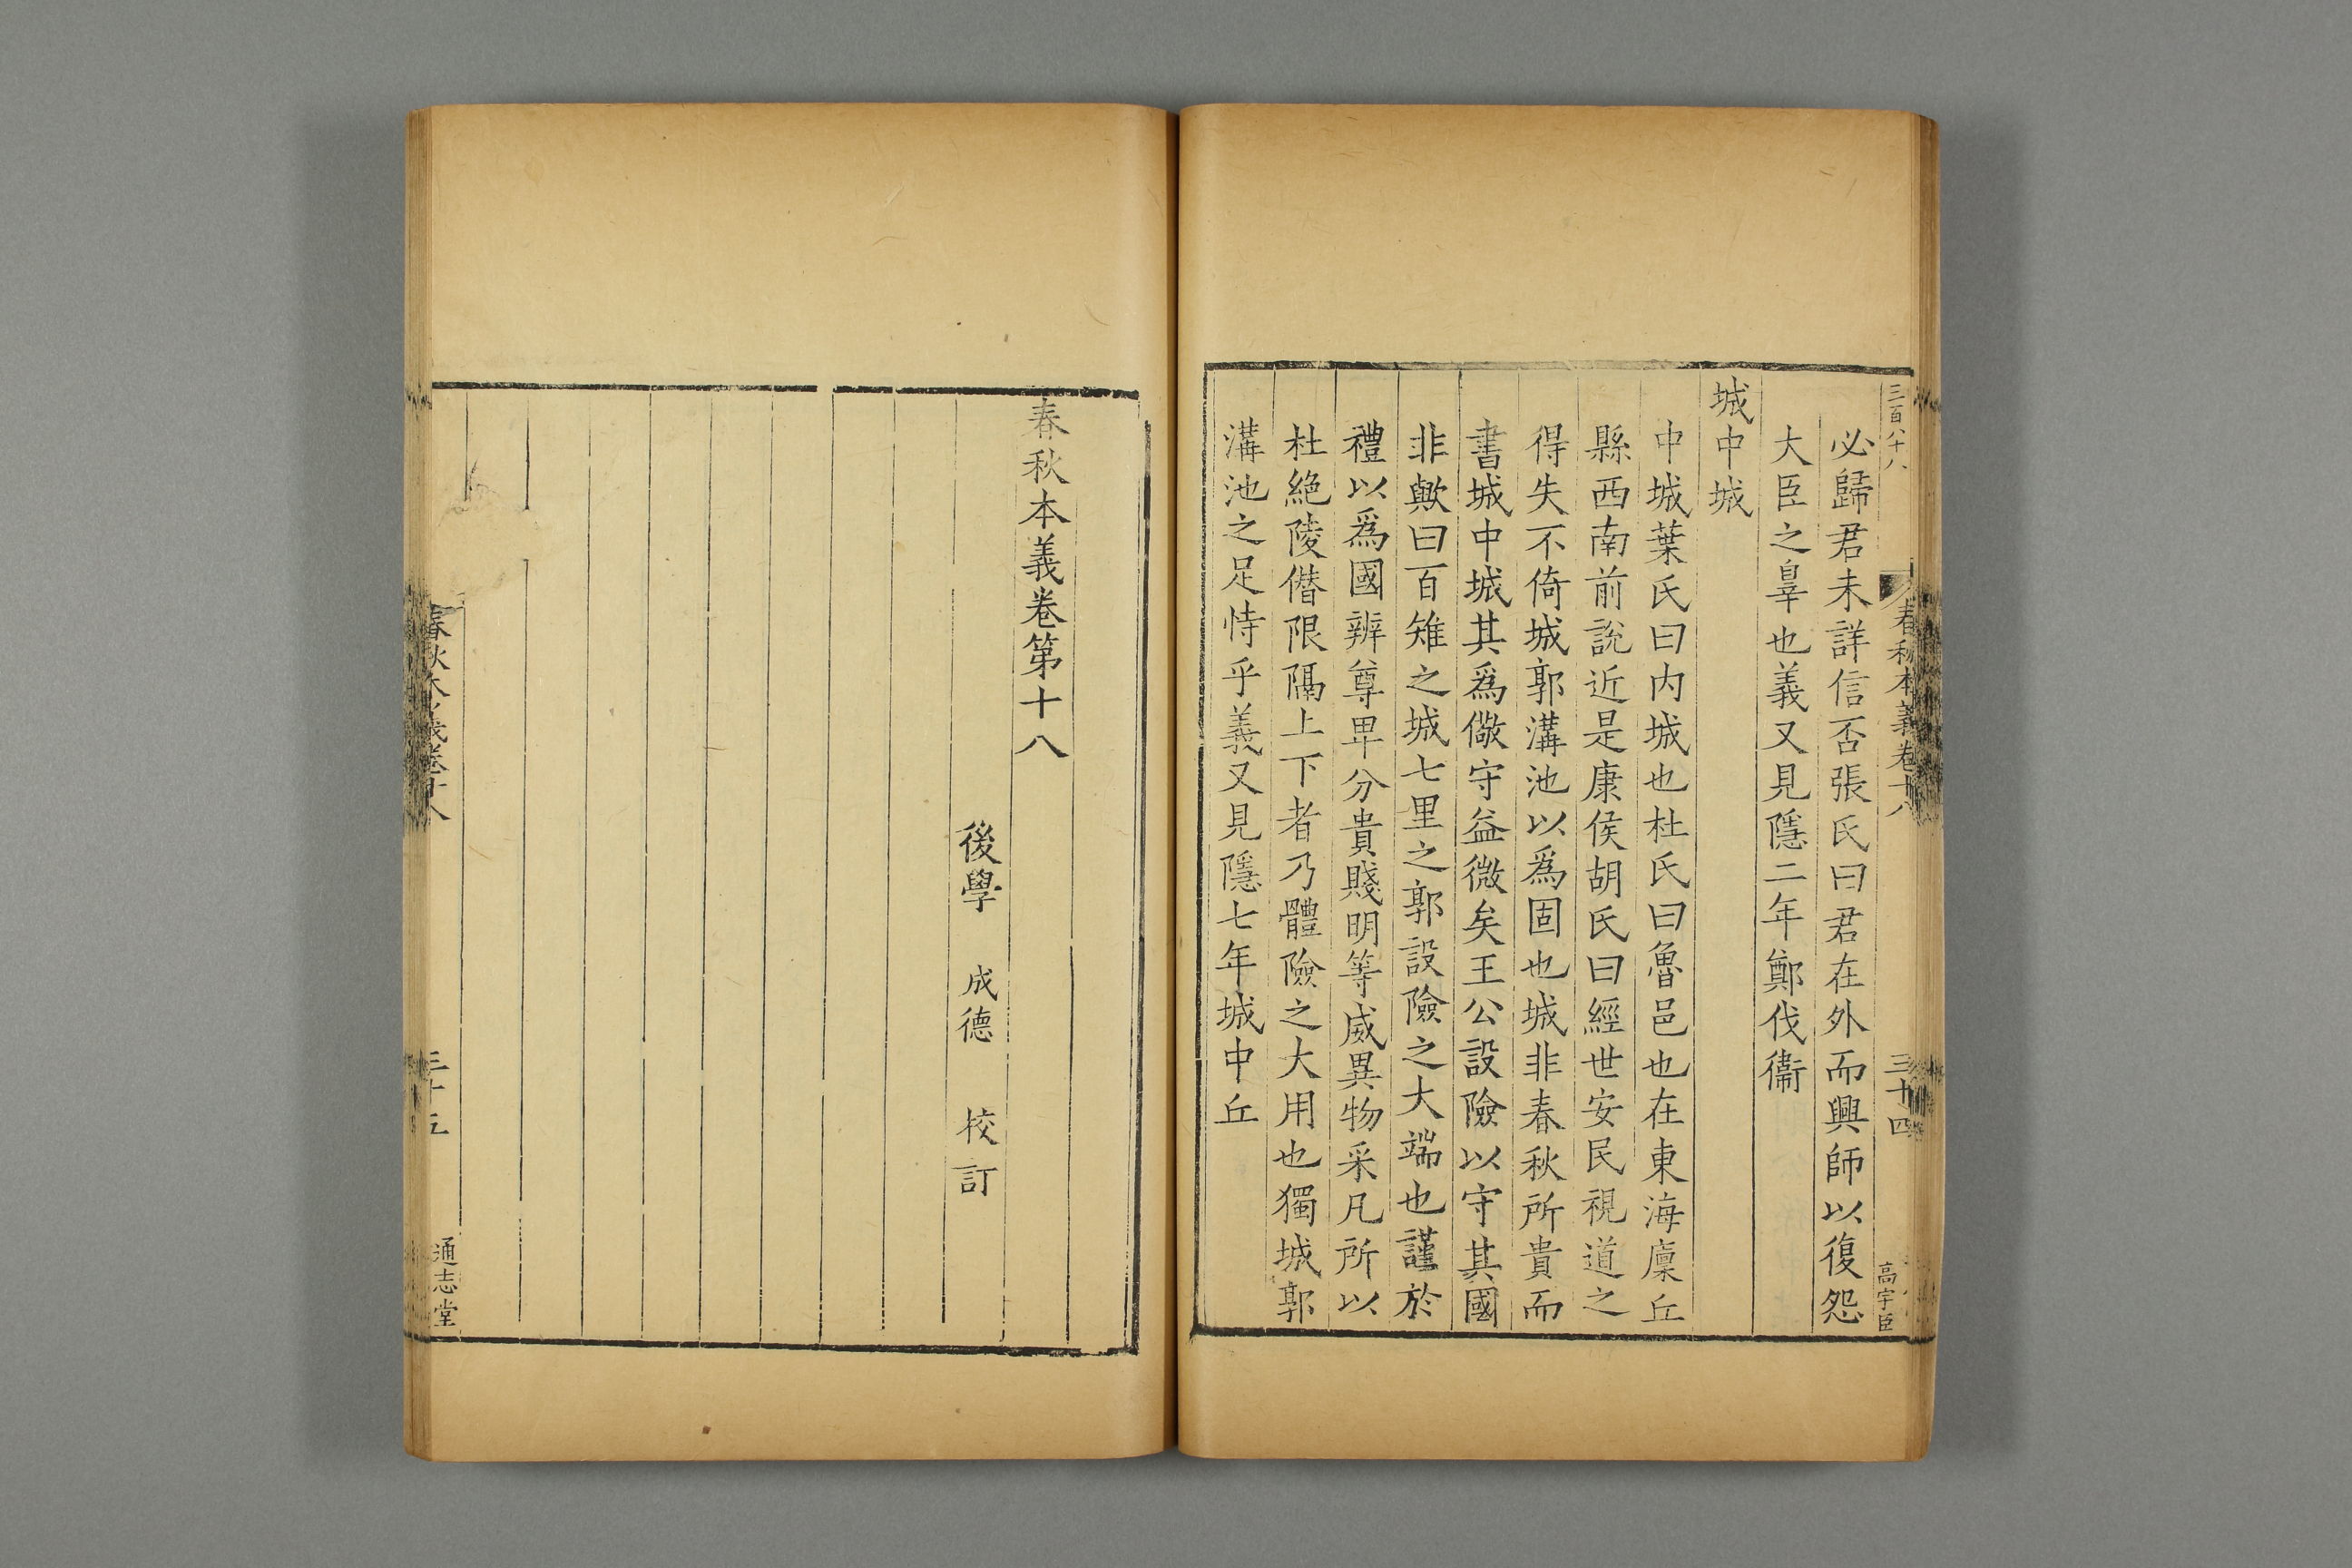 三百八十八
春秋本義卷十八
三十四
高宇臣
必歸君未詳信否張氏曰君在外而興師以復怨
大臣之辠也義又見隱二年鄭伐衞
城中城
中城葉氏曰内城也杜氏曰魯邑也在東海廩丘
縣西南前說近是康侯胡氏曰經世安民視道之
得失不倚城郭溝池以爲固也城非春秋所貴而
書城中城其爲儆守益微矣王公設險以守其國
非歟曰百雉之城七里之郭設險之大端也謹於
禮以爲國辨尊卑分貴賤明等威異物采凡所以
杜絶陵僭限隔上下者乃體險之大用也獨城郭
溝池之足恃乎義又見隱七年城中丘
春秋本義卷第十八
後學 成德 校訂
春秋本義卷十八
三十五
通志堂